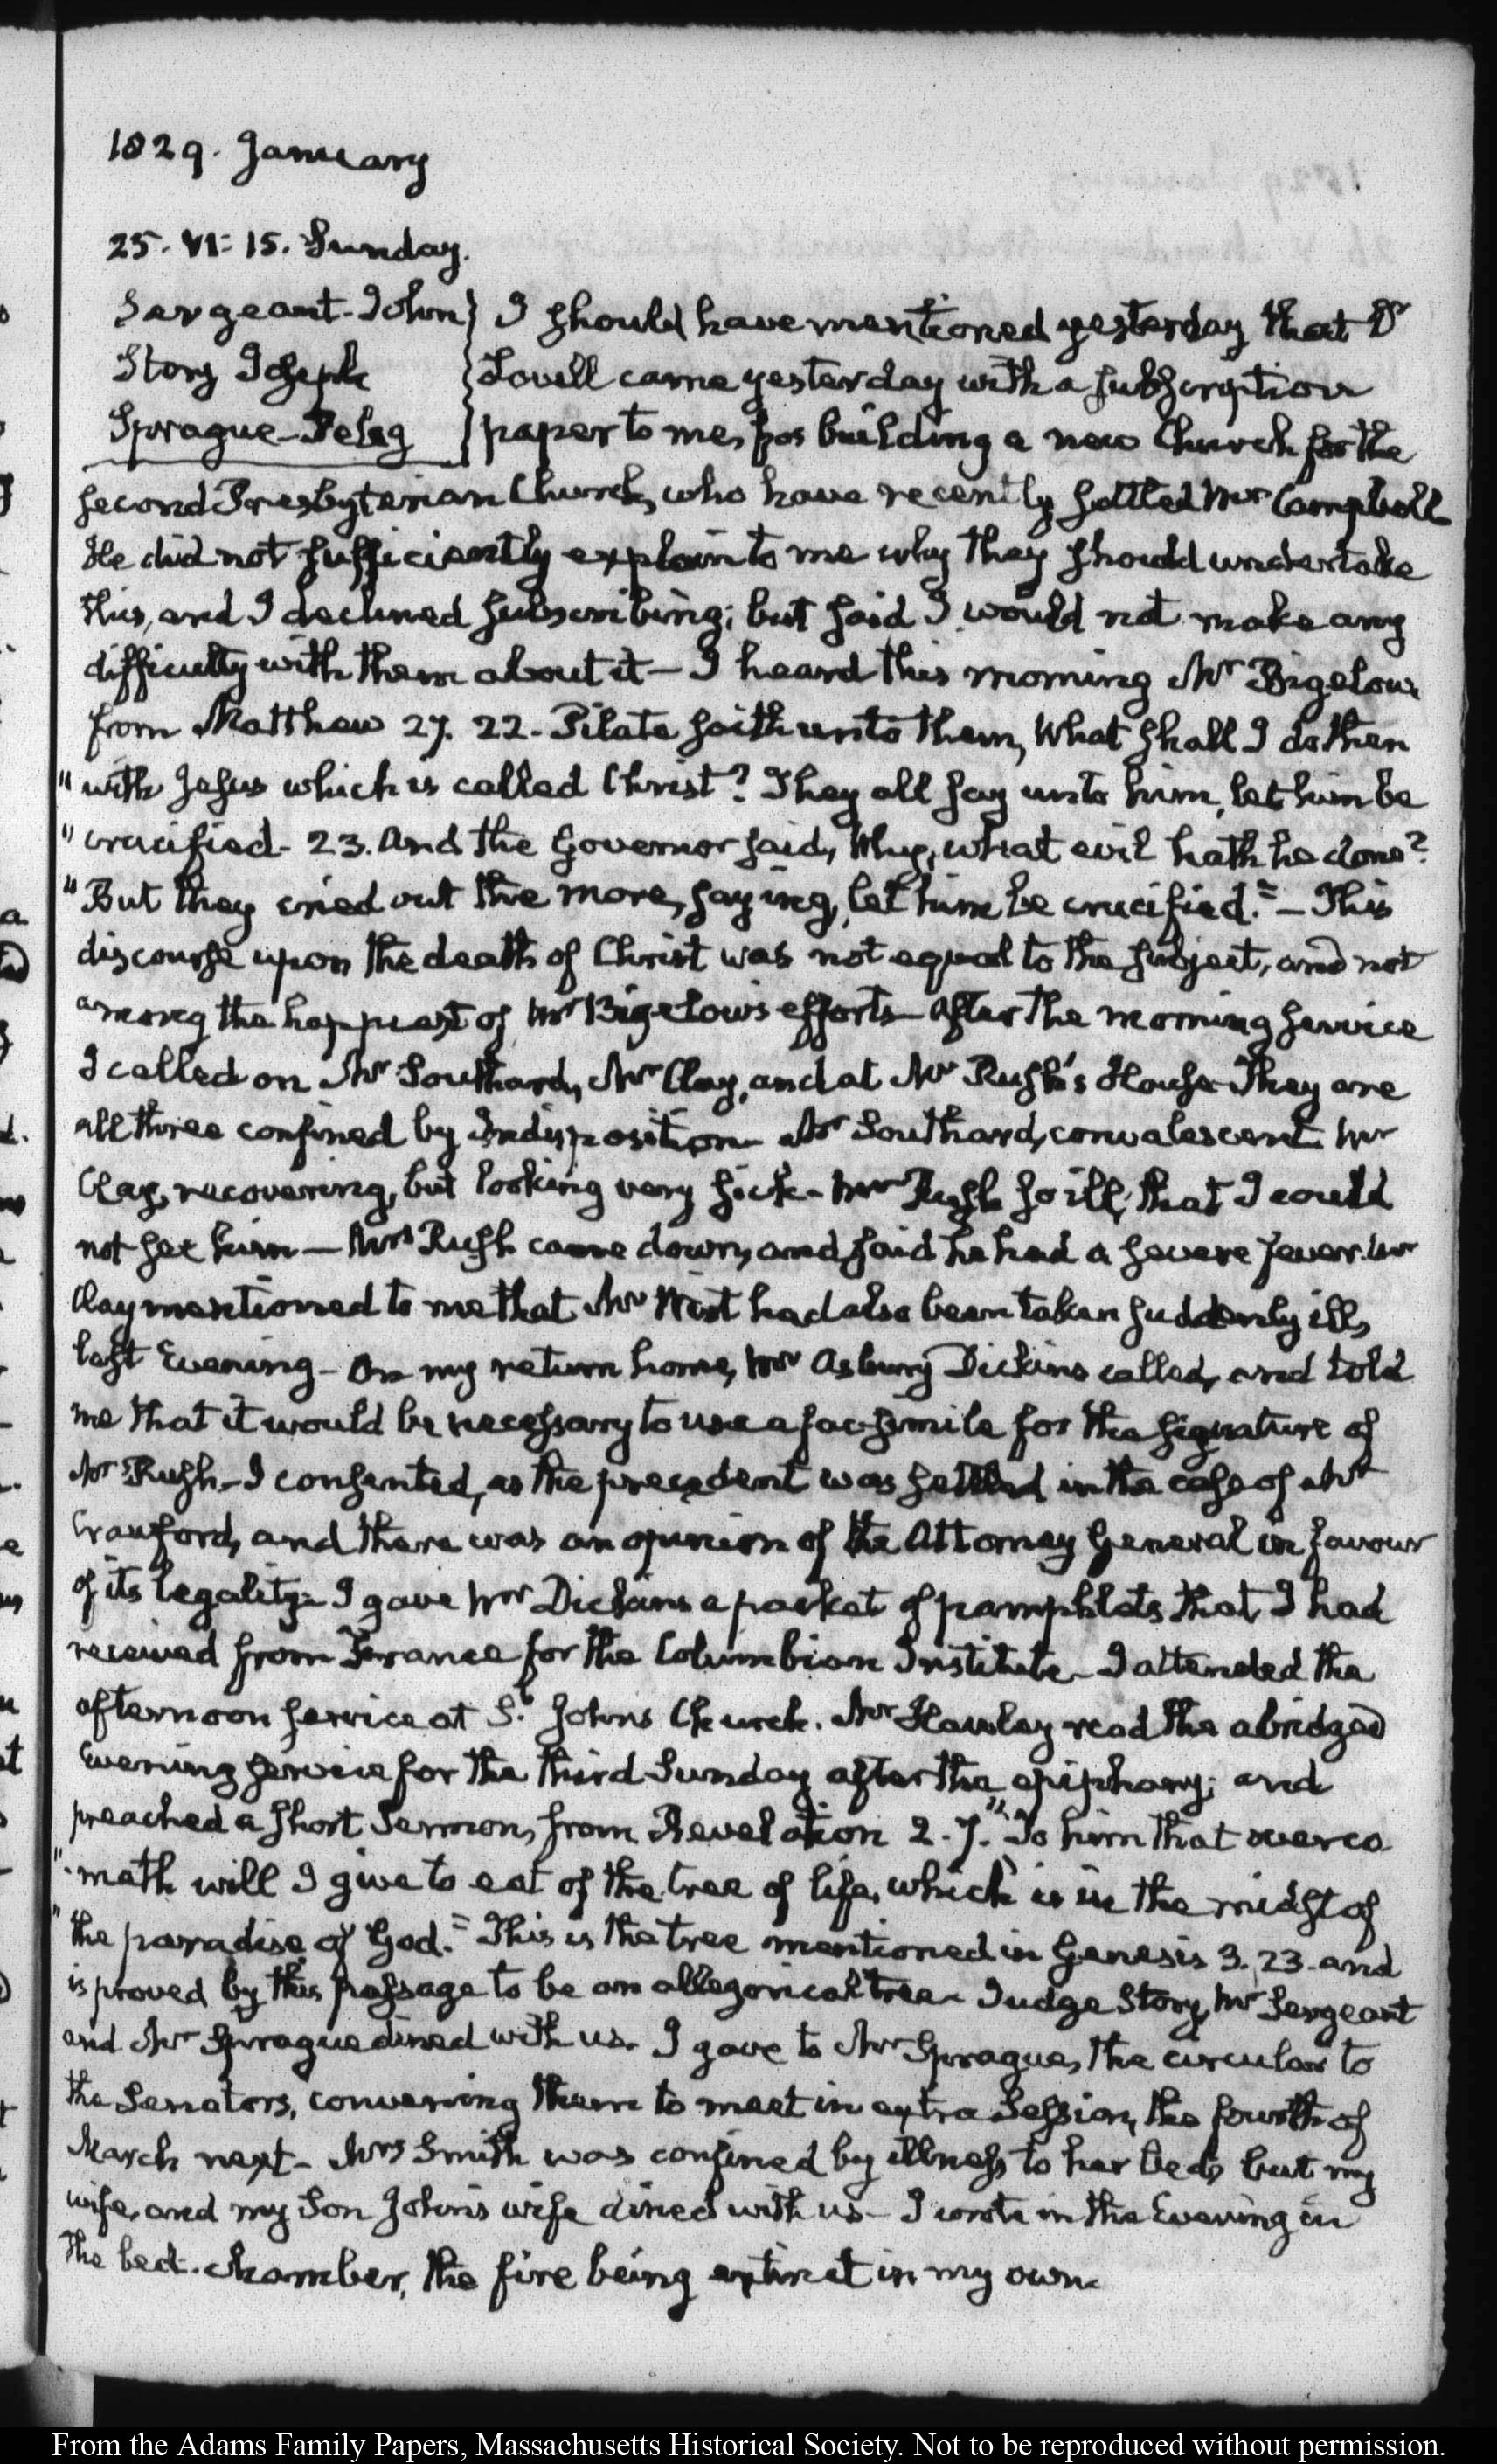 1829. January
25. VI: 15. Sunday.
Sergeant-John } I should have mentioned yesterday that Dr
Story Joseph { Lovell came yesterday with a subscription
Sprague-Peleg } paper to me, for building a new Church for the
second Presbyterian Church, who have recently settled Mr Campbell
He did not sufficiently explain to me why they should undertake
this, and I declined subscribing; but said I would not make any
difficulty with them about it— I heard this morning Mr Bigelow
from Matthew 27. 22. Pilate saith unto them, What shall I do then
" with Jesus which is called Christ? They all say unto him, let him be
" crucified- 23. And the Governor said, Why, what evil hath he done?
" But they cried out the more, saying, let him be crucified."— This
discourse upon the death of Christ was not equal to the subject, and not
among the happiest of Mr Bigelow's efforts— After the morning service
I called on Mr Southard, Mr Clay, and at Mr Rush's House They are
all three confined by Indisposition— Mr Southard, convalescent Mr
Clay, recovering, but looking very sick— Mr Rush so ill, that I could
not see him— Mrs Rush came down, and said he had a severe fever. Mr
Clay mentioned to me that Mr Wirt had also been taken suddenly ill,
last Evening— On my return home, Mr Asbury Dickins called, and told
me that it would be necessary to use a fac-simile for the signature of
Mr Rush— I consented, as the precedent was settled in the case of Mr
Crawford, and there was an opinion of the Attorney General in favour
of its legality— I gave Mr Dickins a packet of pamphlets that I had
received from France for the Columbian Institute— I attended the
afternoon service at St. Johns Church. Mr Hawley read the abridged
Evening service for the third Sunday after the epiphany; and
preached a short Sermon, from Revelation 2. 7. "To him that overco
" meth will I give to eat of the tree of life, which is in the midst of
" the paradise of God." This is the tree mentioned in Genesis 3. 23. and
is proved by this passage to be an allegorical tree— Judge Story, Mr Sergeant
and Mr Sprague dined with us. I gave to Mr Sprague, the circular to
the Senators, convening them to meet in extra Session, the fourth of
March next— Mrs Smith was confined by illness to her bed, but my
wife, and my Son John's wife dined with us— I wrote in the Evening in
the bed-chamber, the fire being extinct in my own.
From the Adams Family Papers, Massachusetts Historical Society. Not to be reproduced without permission.